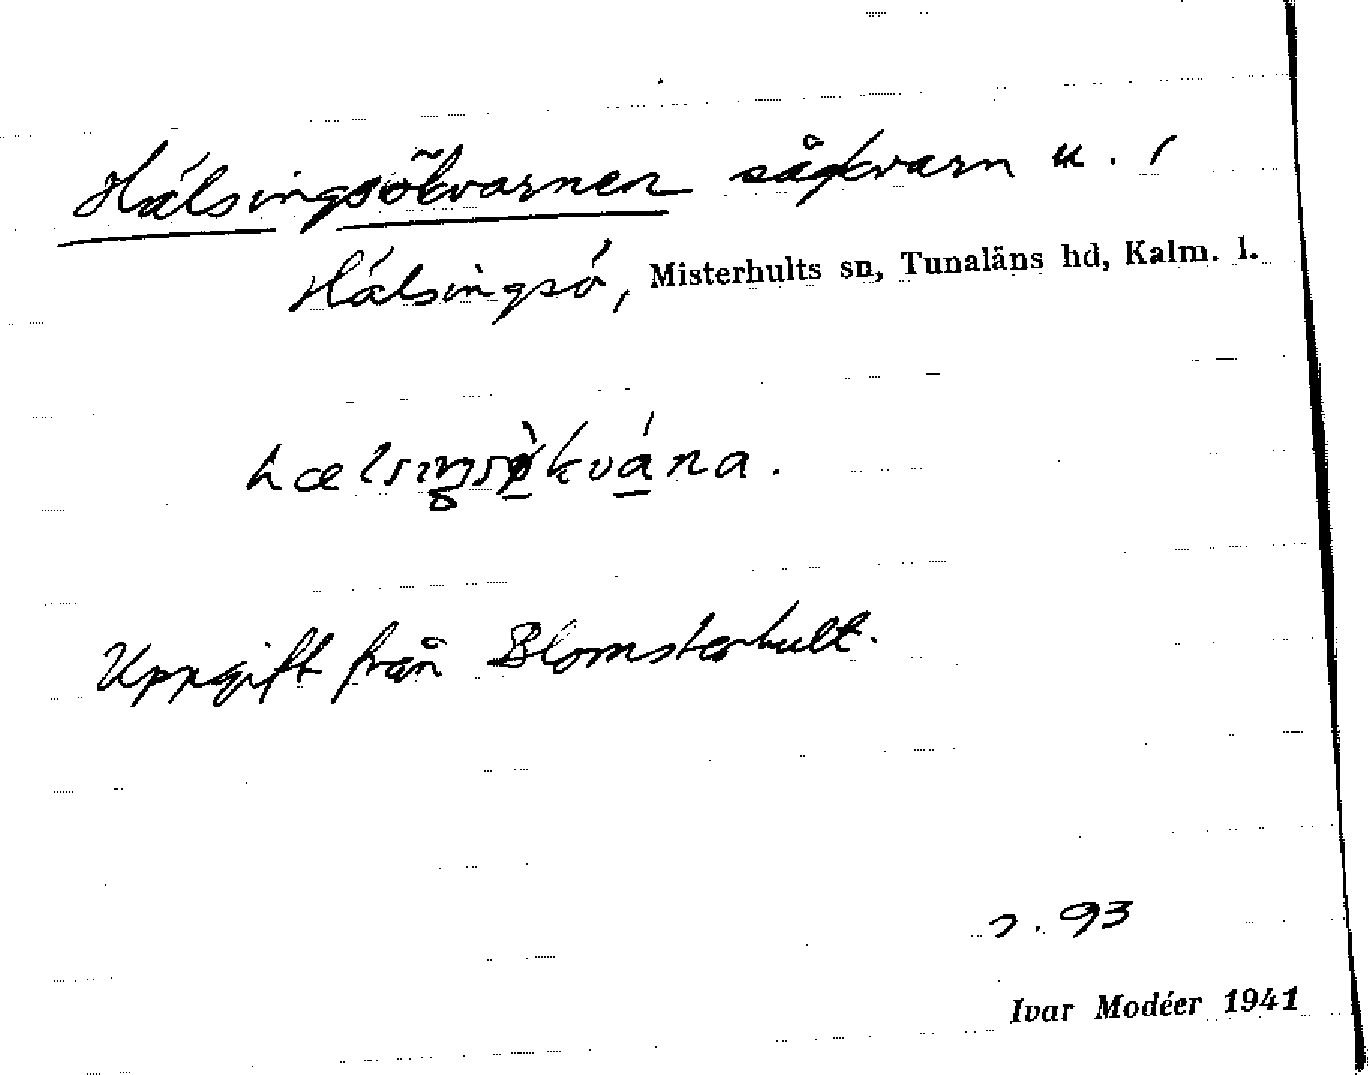 Hälsingsökvarnen sågkvarn u. /
Hälsingsö, Misterhults sn, Tunaläns hd, Kalm. l.
hælsiŋsø̀kvána.
Uppgift från Blomsterhult.
93
Ivar Modéer 1941